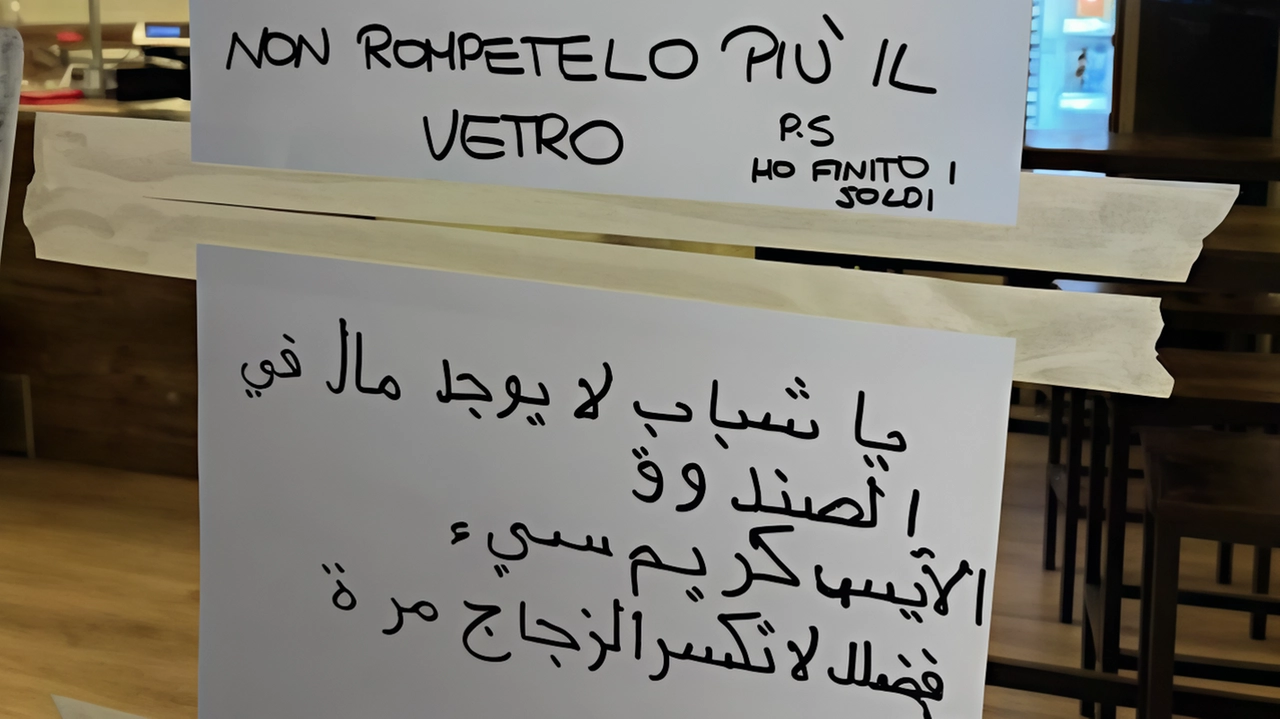 NON ROMPETELO PIÙ IL
VETRO
P.S
HO FINITO I
SOLDI
يا شباب لا يوجد مال في
الصندوق
الآيس كريم سيء
فضلك لا تكسر الزجاج مرة